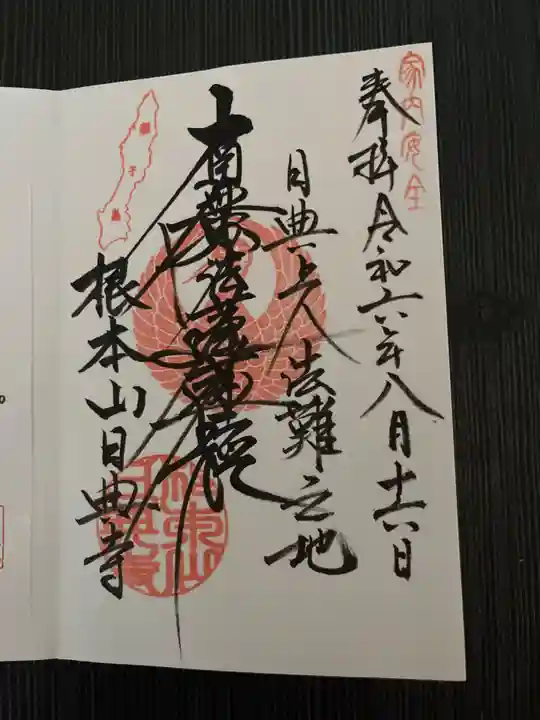 家内安全
奉拝 令和六年八月十六日
日典上人 法難之地
南無妙法蓮華経
根本山日典寺
種子島